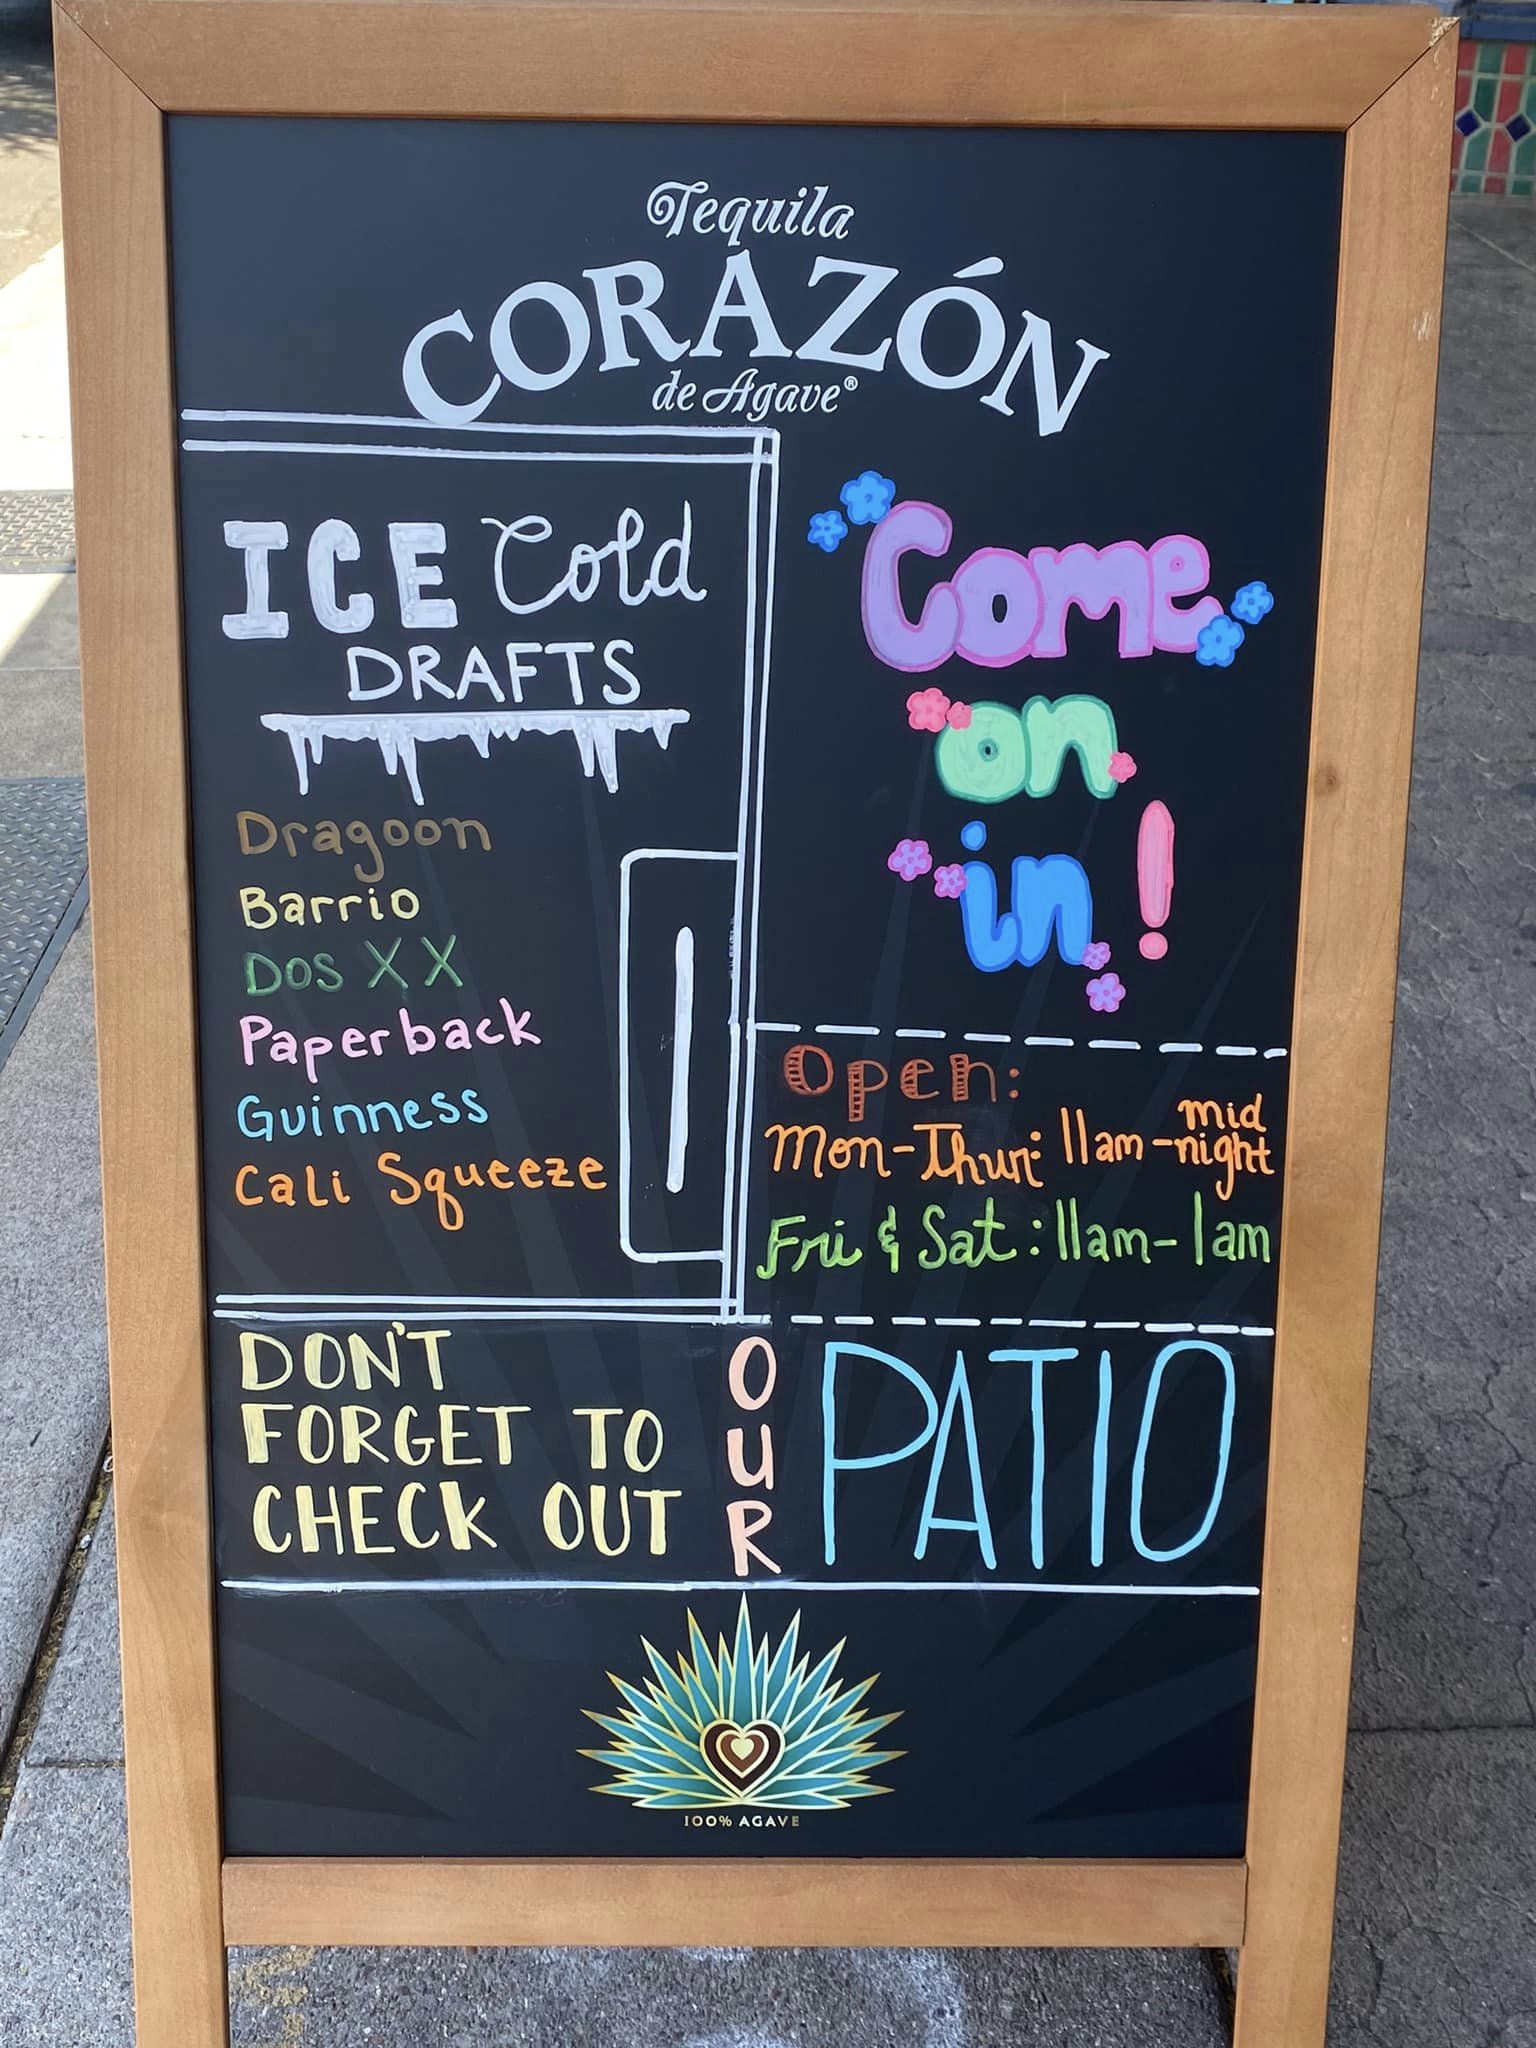 Tequila
CORAZÓN
de Agave®
ICE Cold
DRAFTS
Dragoon
Barrio
DOS X X
Paperback
Guinness
Cali Squeeze
Come
on
in!
Open:
Mon-Thur: 11am-mid night
Fri & Sat: 11am-1am
DON'T
FORGET TO
CHECK OUT
OUR
PATIO
100% AGAVE